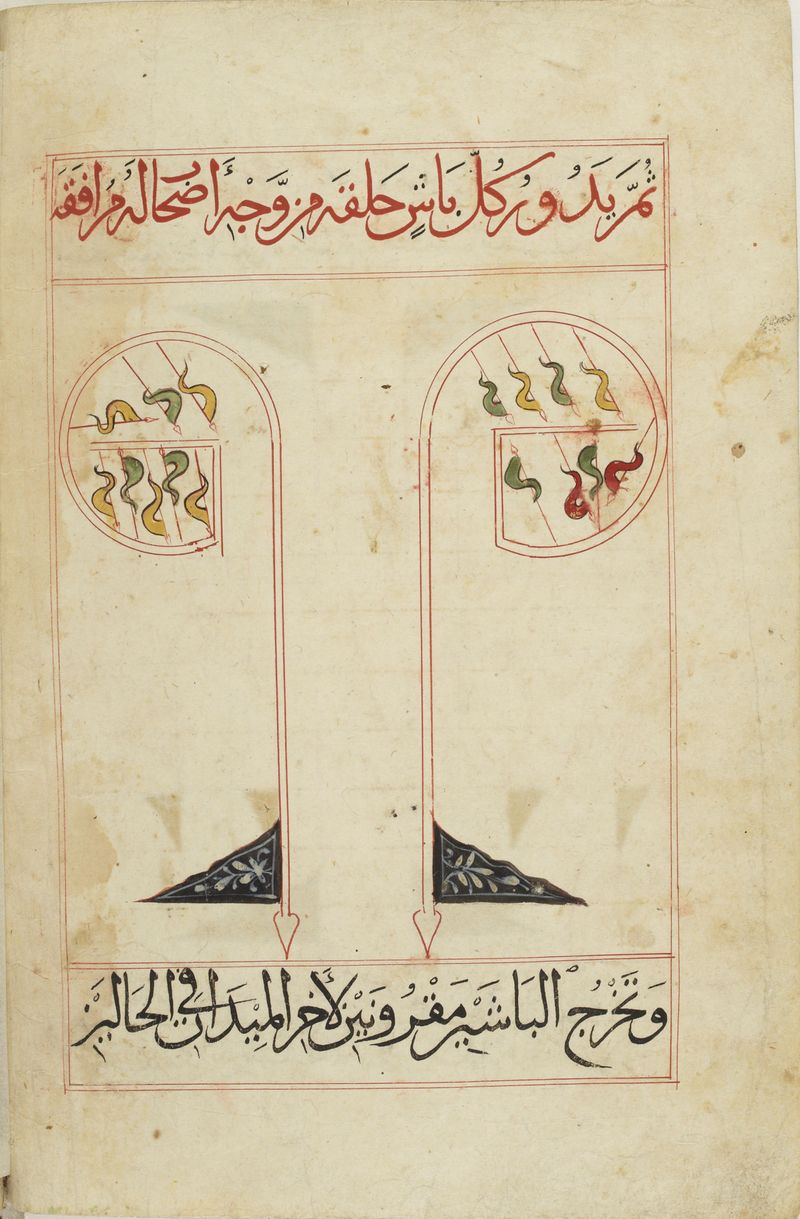 ثُمَّ يَدُورُ كُلُّ بَاشٍ حَلقَه مِن وَّجْهِ أَصْحَابِ لَهُ مُرَافَقَه
وَتَخْرُجُ البَاشَيْنِ مَقْرُونَيْنِ لأَخِرِ المِيْدَانِ فِي الحَالَيْنِ